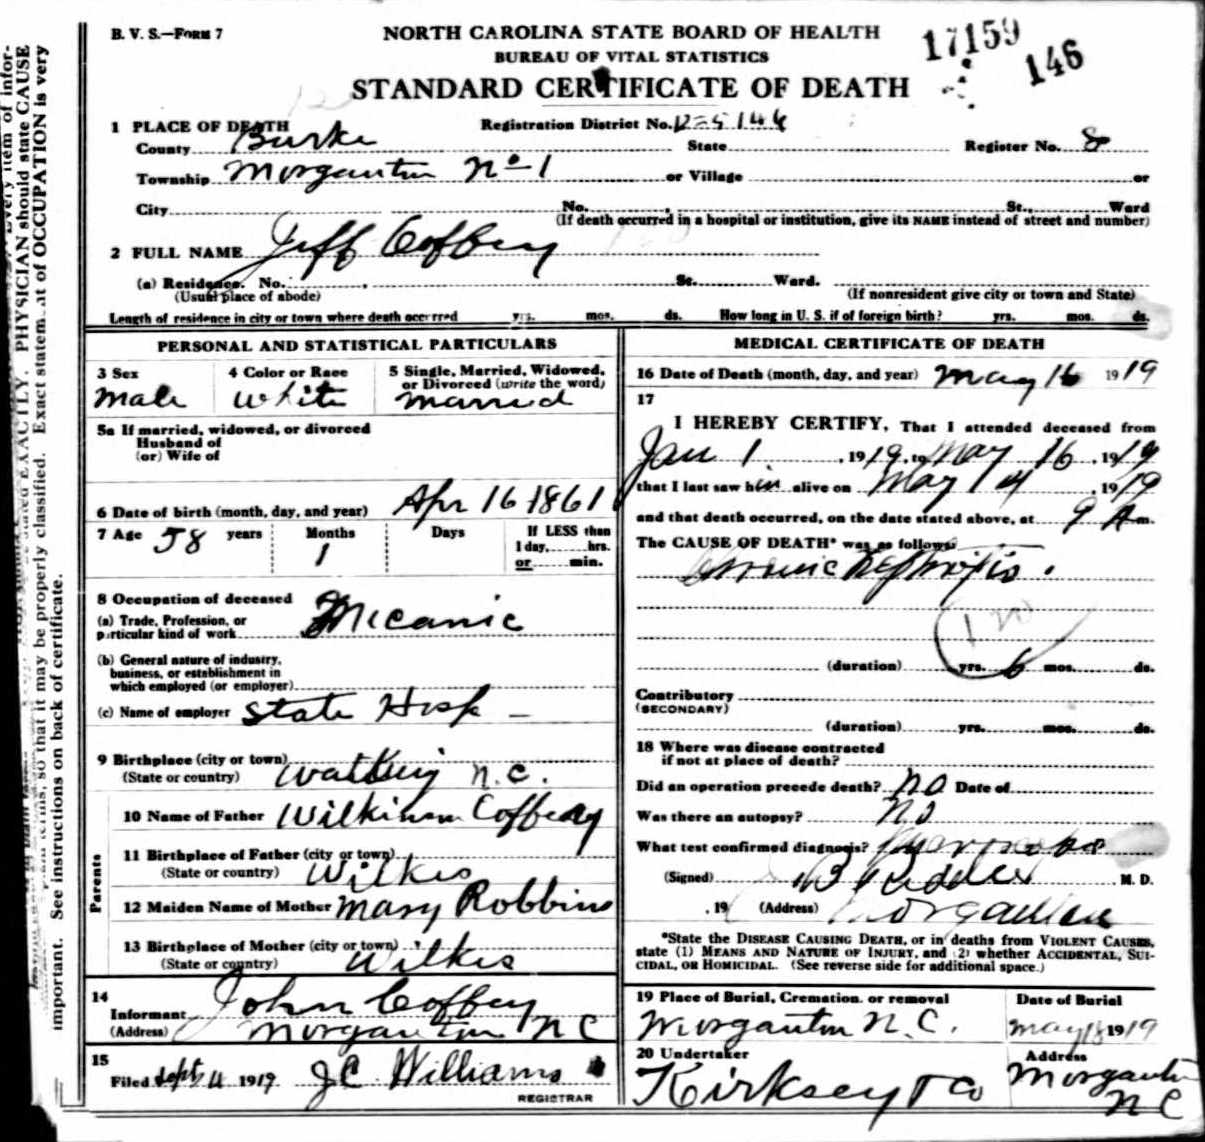 B. V. S.—FORM 7
NORTH CAROLINA STATE BOARD OF HEALTH
BUREAU OF VITAL STATISTICS
STANDARD CERTIFICATE OF DEATH
17159
146
1 PLACE OF DEATH
Registration District No.
County Burke State Register No. 8
Township Morganton No 1 or Village or
City No. , St., Ward
(If death occurred in a hospital or institution, give its NAME instead of street and number)
2 FULL NAME Jeff Coffey
(a) Residence. No. , St. Ward.
(Usual place of abode) (If nonresident give city or town and State)
Length of residence in city or town where death occurred yrs. mos. ds. How long in U. S. if of foreign birth? yrs. mos. ds.
PERSONAL AND STATISTICAL PARTICULARS
3 Sex 4 Color or Race 5 Single, Married, Widowed,
or Divorced (write the word)
Male White Married
5a If married, widowed, or divorced
Husband of
(or) Wife of
6 Date of birth (month, day, and year) Apr 16 1861
7 Age 58 years Months 1 Days If LESS than
1 day, hrs.
or min.
8 Occupation of deceased
(a) Trade, Profession, or
particular kind of work Mecanic
(b) General nature of industry,
business, or establishment in
which employed (or employer)
(c) Name of employer State Hosp
9 Birthplace (city or town)
(State or country) N.C.
Parents
10 Name of Father Coffeay
11 Birthplace of Father (city or town)
(State or country) Wilkes
12 Maiden Name of Mother Mary Robbins
13 Birthplace of Mother (city or town)
(State or country) Wilkes
14
Informant John Coffey
(Address) Morganton N C
15
Filed Sept 4 1919 J C Williams
REGISTRAR
MEDICAL CERTIFICATE OF DEATH
16 Date of Death (month, day, and year) May 16 1919
17
I HEREBY CERTIFY, That I attended deceased from
Jan 1 , 1919, to May 16 , 1919
that I last saw him alive on May 14 , 1919
and that death occurred, on the date stated above, at 9 A m.
The CAUSE OF DEATH* was as follows:
Chronic Nephritis .
(duration) yrs. 6 mos. ds.
Contributory
(SECONDARY)
(duration) yrs. mos. ds.
18 Where was disease contracted
if not at place of death?
Did an operation precede death? no Date of
Was there an autopsy? no
What test confirmed diagnosis?
(Signed) M. D.
, 19 (Address) Morganton
*State the DISEASE CAUSING DEATH, or in deaths from VIOLENT CAUSES,
state (1) MEANS AND NATURE OF INJURY, and (2) whether ACCIDENTAL, SUI-
CIDAL, OR HOMICIDAL. (See reverse side for additional space.)
19 Place of Burial, Cremation. or removal Date of Burial
Morganton N. C. May 18 1919
20 Undertaker Address
Kirksey & Co Morganton
N C
Every item of infor-
PHYSICIAN should state CAUSE
EXACTLY.
Exact statement of OCCUPATION is very
so that it may be properly classified.
important. See instructions on back of certificate.